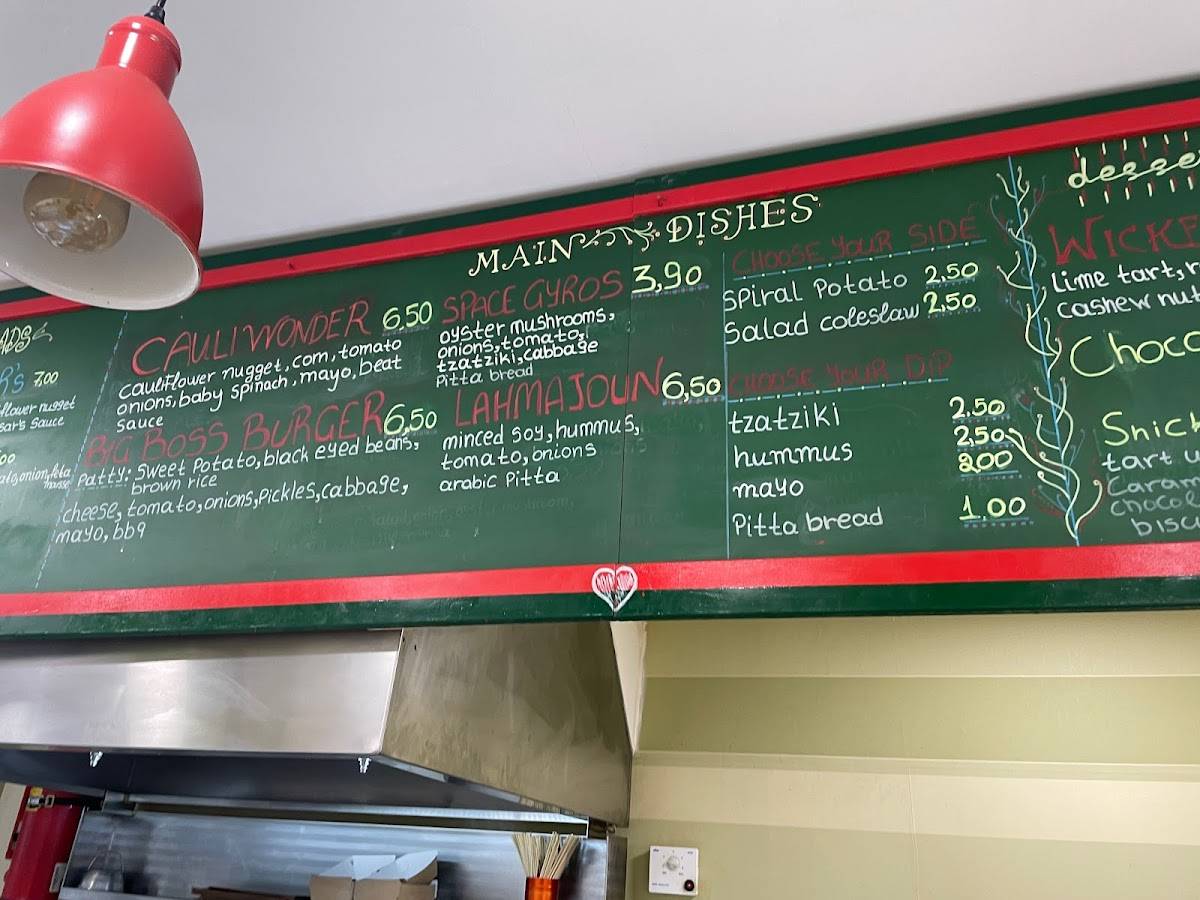 7.00
sauce
MAIN DISHES
CAULIWONDER 6,50
cauliflower nugget, corn, tomato
onions, baby spinach, mayo, beat
sauce
BIG BOSS BURGER 6,50
Patty: Sweet Potato, black eyed beans,
brown rice
cheese, tomato, onions, Pickles, cabbage,
mayo, bbq
SPACE GYROS 3,90
oyster mushrooms,
onions, tomato,
tzatziki, cabbage
Pitta bread
LAHMAJOUN 6,50
minced soy, hummus,
tomato, onions
arabic Pitta
CHOOSE YOUR SIDE
Spiral Potato 2,50
Salad coleslaw 2,50
CHOOSE YOUR DIP
tzatziki 2.50
hummus 2,50
mayo 2.00
Pitta bread 1.00
desse
WICKE
Lime tart,
cashew nut
Choco
Snick
tart
Caram
chocol
bisc